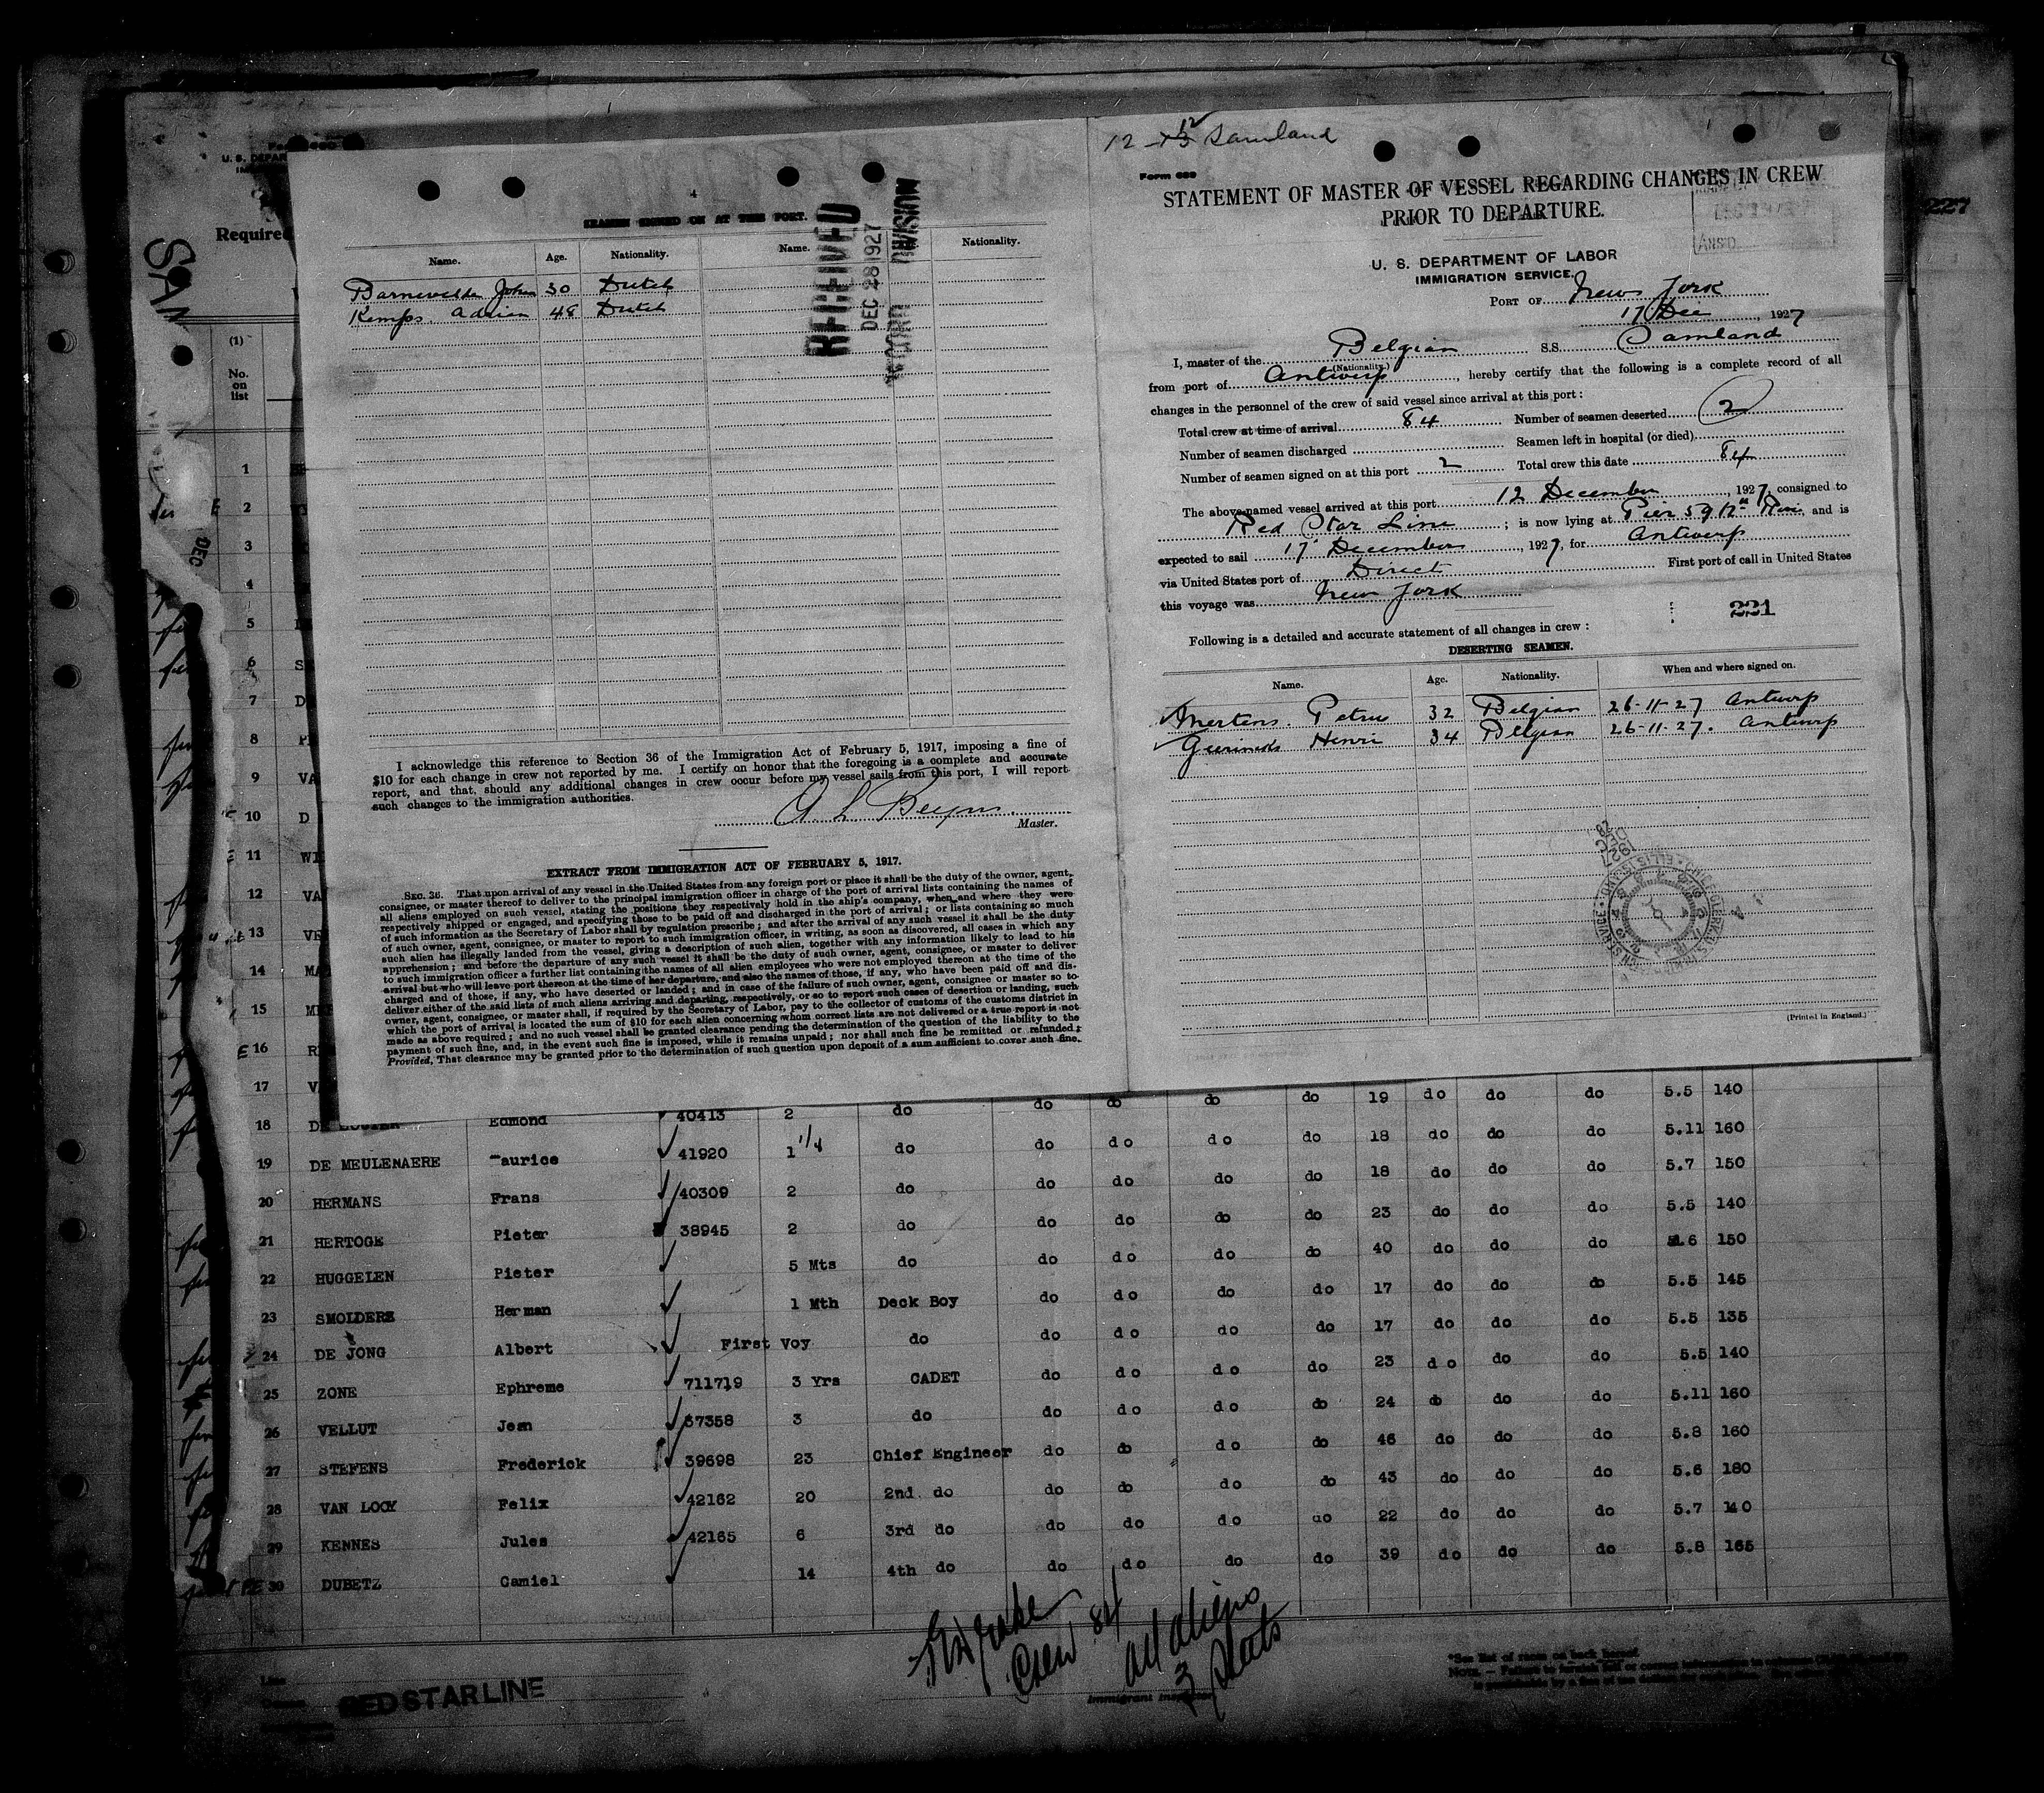 12 - 12 Samland
Form 689
STATEMENT OF MASTER OF VESSEL REGARDING CHANGES IN CREW
PRIOR TO DEPARTURE.
U. S. DEPARTMENT OF LABOR
IMMIGRATION SERVICE.
PORT OF New York
17 Dec, 1927
I, master of the Belgian S.S. Samland
(Nationality)
from port of Antwerp, hereby certify that the following is a complete record of all
changes in the personnel of the crew of said vessel since arrival at this port:
Total crew at time of arrival 84 Number of seamen deserted 2
Number of seamen discharged Seamen left in hospital (or died)
Number of seamen signed on at this port 2 Total crew this date 84
The above-named vessel arrived at this port 12 December, 1927, consigned to
Red Star Line; is now lying at Pier 59 and is
expected to sail 17 December, 1927, for Antwerp
via United States port of Direct First port of call in United States
this voyage was New York
221
Following is a detailed and accurate statement of all changes in crew:
DESERTING SEAMEN.
Name. Age. Nationality. When and where signed on.
Mertens. Petrus 32 Belgian 26-11-27 Antwerp
Henri 34 Belgian 26-11-27. Antwerp
(Printed in England.)
SEAMEN SIGNED ON AT THIS PORT.
Name. Age. Nationality. Name. Nationality.
Barnevelde John 30 Dutch
Kemps. Adrien 48 Dutch
RECEIVED
DEC 28 1927
RECORD DIVISION
I acknowledge this reference to Section 36 of the Immigration Act of February 5, 1917, imposing a fine of
$10 for each change in crew not reported by me. I certify on honor that the foregoing is a complete and accurate
report, and that, should any additional changes in crew occur before my vessel sails from this port, I will report
such changes to the immigration authorities.
Master.
EXTRACT FROM IMMIGRATION ACT OF FEBRUARY 5, 1917.
SEC. 36. That upon arrival of any vessel in the United States from any foreign port or place it shall be the duty of the owner, agent,
consignee, or master thereof to deliver to the principal immigration officer in charge of the port of arrival lists containing the names of
all aliens employed on such vessel, stating the positions they respectively hold in the ship's company, when and where they were
respectively shipped or engaged, and specifying those to be paid off and discharged in the port of arrival; or lists containing so much
of such information as the Secretary of Labor shall by regulation prescribe; and after the arrival of any such vessel it shall be the duty
of such owner, agent, consignee, or master to report to such immigration officer, in writing, as soon as discovered, all cases in which any
such alien has illegally landed from the vessel, giving a description of such alien, together with any information likely to lead to his
apprehension; and before the departure of any such vessel it shall be the duty of such owner, agent, consignee, or master to deliver
to such immigration officer a further list containing the names of all alien employees who were not employed thereon at the time of the
arrival but who will leave port thereon at the time of her departure, and also the names of those, if any, who have been paid off and dis-
charged and of those, if any, who have deserted or landed; and in case of the failure of such owner, agent, consignee or master so to
deliver either of the said lists of such aliens arriving and departing, respectively, or so to report such cases of desertion or landing, such
owner, agent, consignee, or master shall, if required by the Secretary of Labor, pay to the collector of customs of the customs district in
which the port of arrival is located the sum of $10 for each alien concerning whom correct lists are not delivered or a true report is not
made as above required; and no such vessel shall be granted clearance pending the determination of the question of the liability to the
payment of such fine, and, in the event such fine is imposed, while it remains unpaid; nor shall such fine be remitted or refunded:
Provided, That clearance may be granted prior to the determination of such question upon deposit of a sum sufficient to cover such fine.
SAN
Required
(1)
No.
on
list
DEC
1
2
3
4
5
6
7
8
9 VA
10 D
11
12 VA
13 VE
14 MA
15
16
17
do do do do 19 do do do 5.5 140
18 Edmond 40413 2 do do do do do 18 do do do 5.11 160
19 DE MEULENAERE Maurice 41920 1 1/4 do do do do do 18 do do do 5.7 150
20 HERMANS Frans 40309 2 do do do do do 23 do do do 5.5 140
21 HERTOGE Pieter 38945 2 do do do do do 40 do do do 5.6 150
22 HUGGELEN Pieter 5 Mts do do do do do 17 do do do 5.5 145
23 SMOLDERS Herman 1 Mth Deck Boy do do do do 17 do do do 5.5 135
24 DE JONG Albert First Voy do do do do do 23 do do do 5.5 140
25 ZONE Ephreme 711719 3 Yrs CADET do do do do 24 do do do 5.11 160
26 VELLUT Jean 37358 3 do do do do do 46 do do do 5.8 160
27 STEFENS Frederick 39698 23 Chief Engineer do do do do 43 do do do 5.6 180
28 VAN LOOY Felix 42162 20 2nd. do do do do do 22 do do do 5.7 140
29 KENNES Jules 42165 6 3rd do do do do do 39 do do do 5.8 165
30 DUBETZ Camiel 14 4th do do do
Crew 84
all aliens
3 sheets
RED STAR LINE
Immigrant Inspector